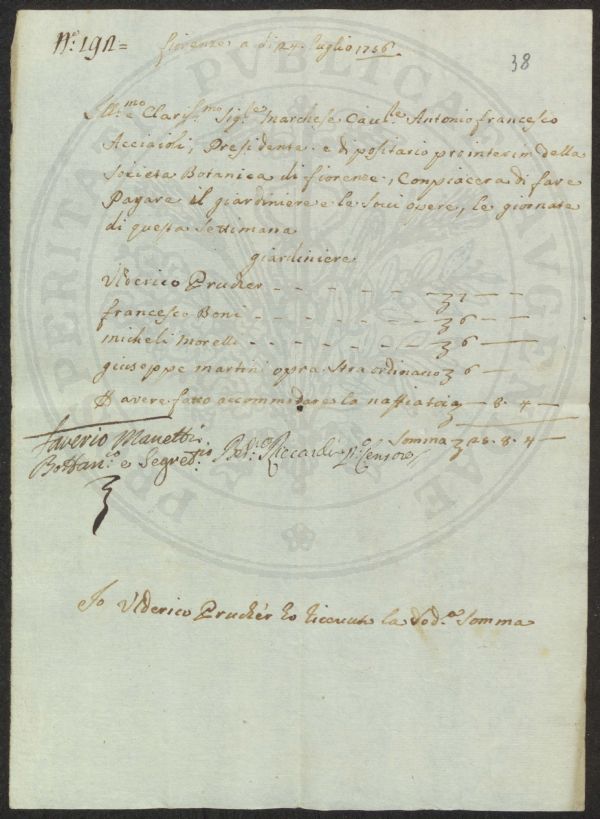 N.º 192 =
fiorenze a di 24. luglio 1756.
38
Ill.mo e Clariss.mo Sig.re Marchese Caul.re Antonio francesco
Acciaioli, Presidente. e dipositario prointerim della
Societa Botanica di fiorenze, Conpiacera di fare
Pagare il giardiniere e le Soui opere, le giornate
di questa Settimana
giardiniere
Vlderico Prucher - - - - - - - 7 -
francesco Boni - - - - - - - 6 -
micheli Morelli - - - - - - 6 -
giuseppe martini opra straordinario 6 -
P avere fatto accommodare la naffiatoia - 8. 4 -
Saverio Manetti
Somma 25. 8. 4 -
Bottan.co e Segret.rio Riccardi Censore
Io Vlderico Pruchér ho riceuuto la Sod.a Somma
PVBLICAE PROSPERITATI AVGENDAE